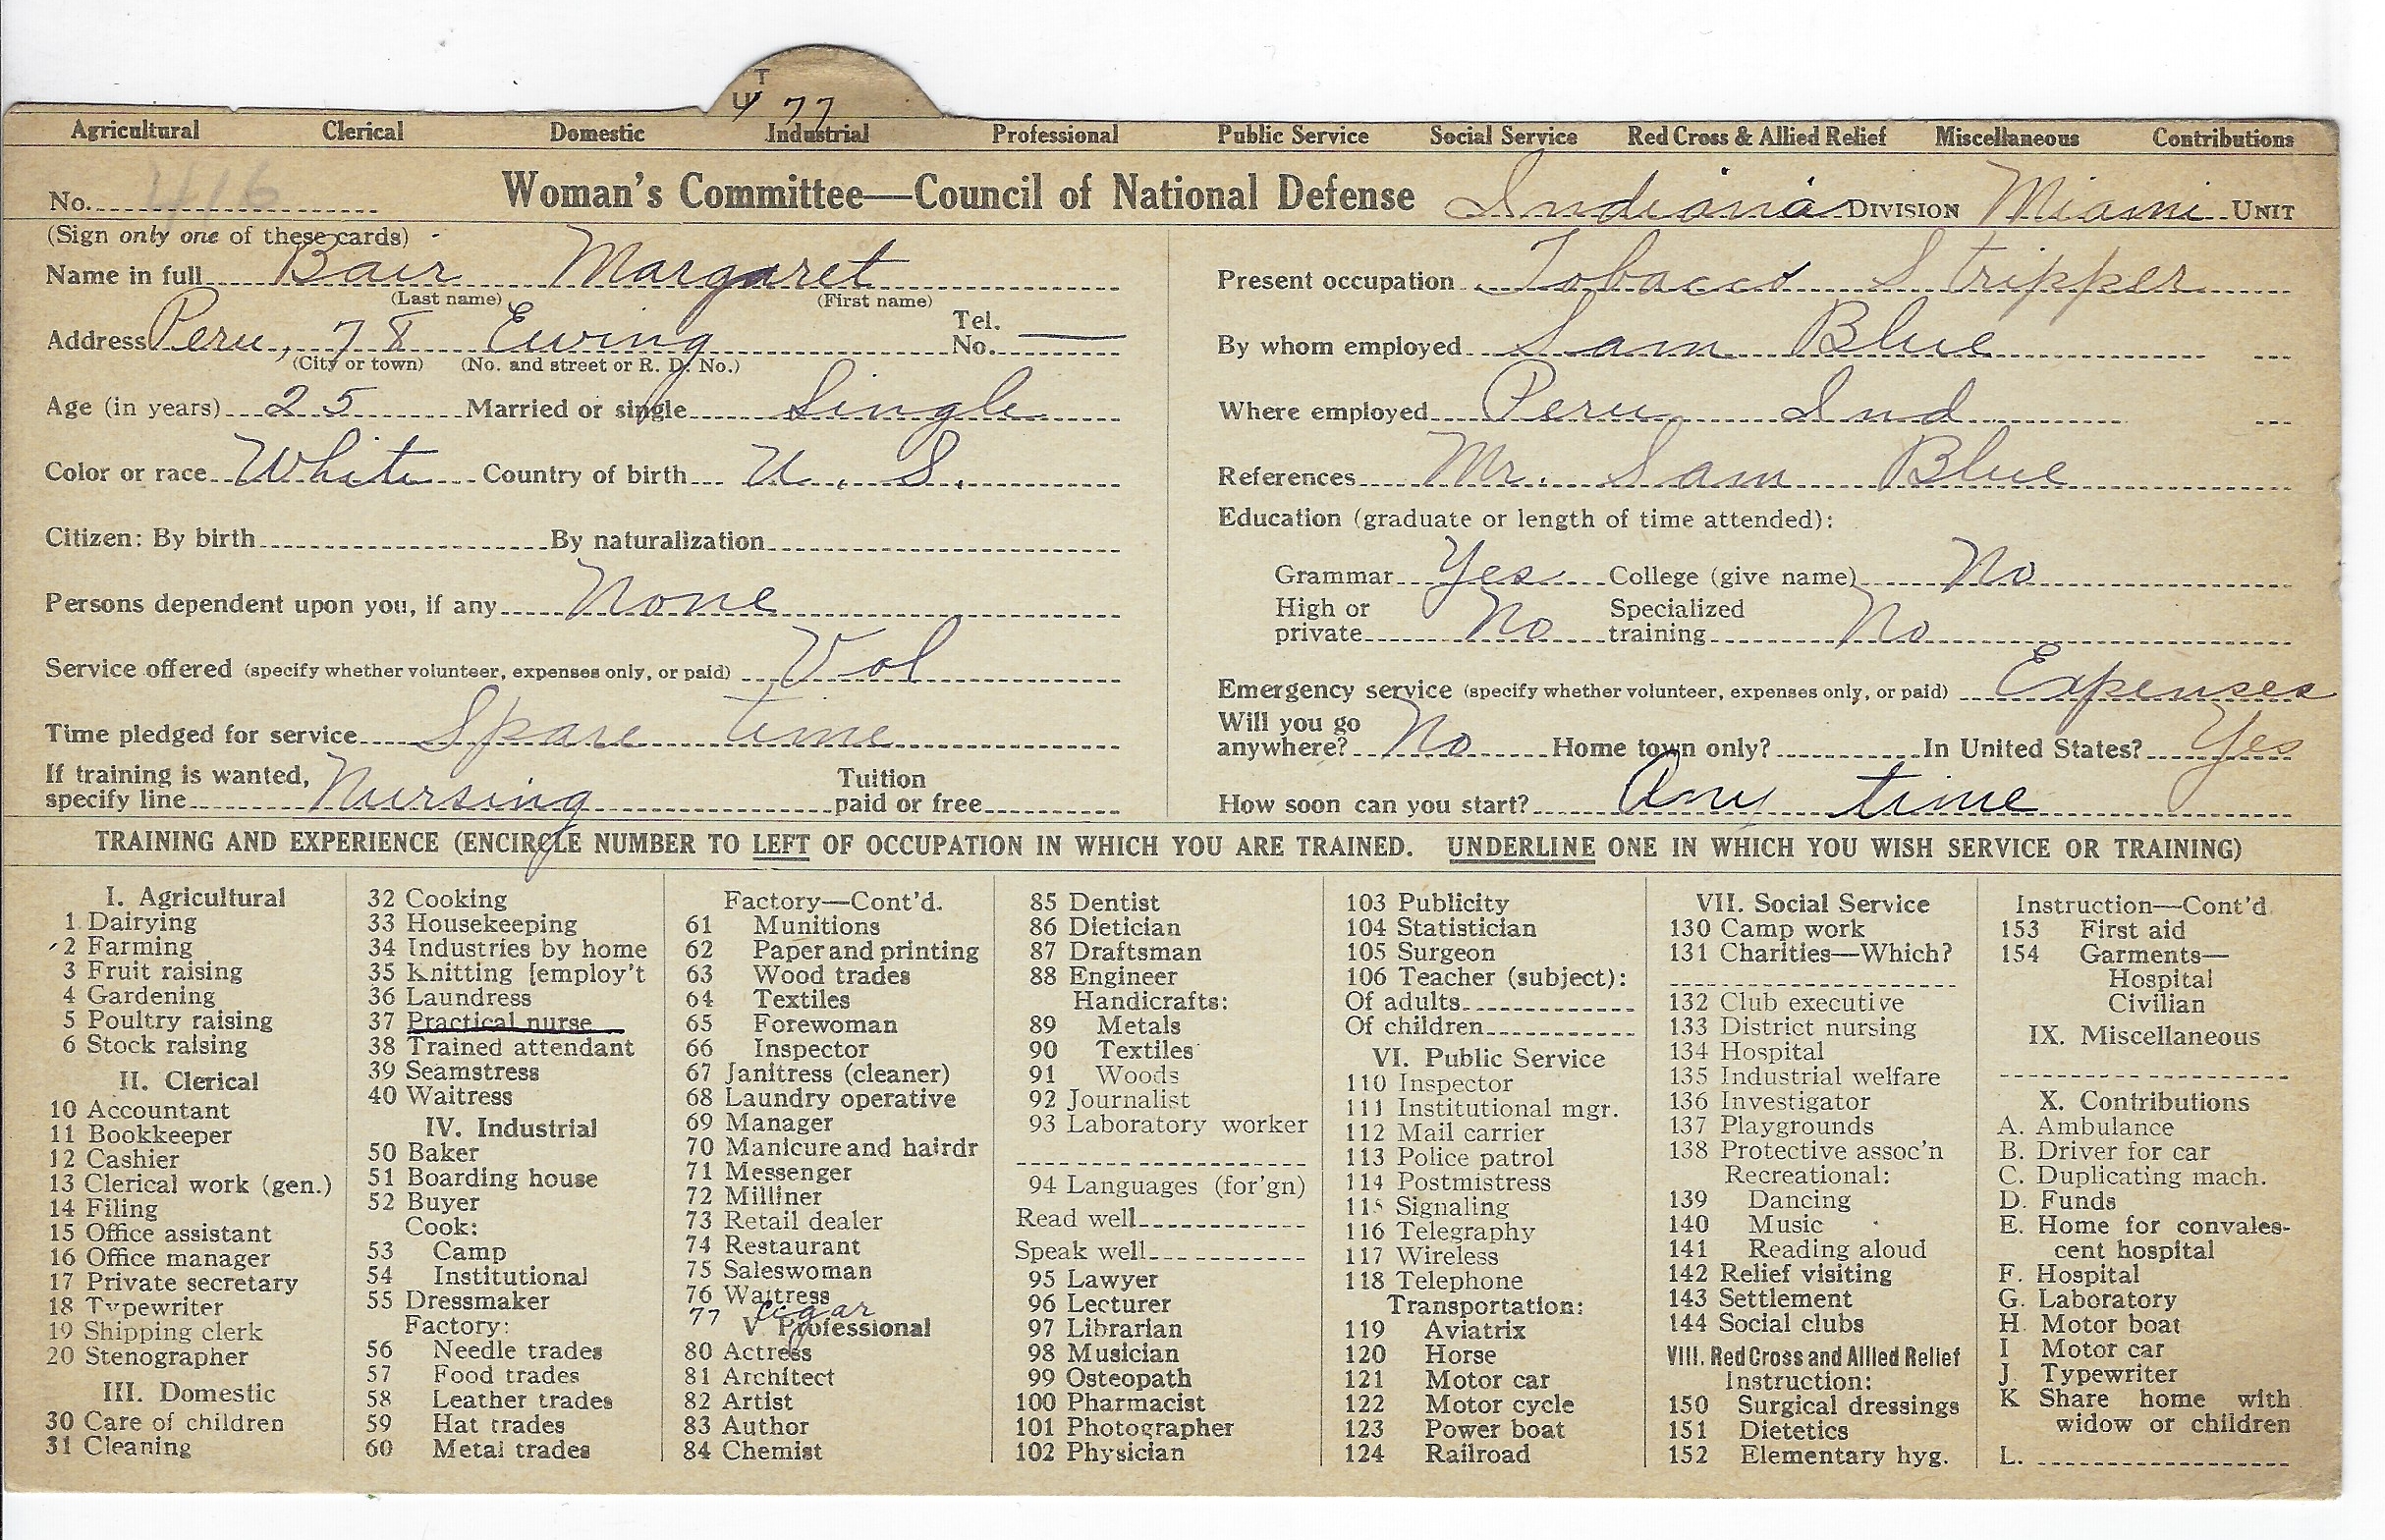 T
4 77
Agricultural Clerical Domestic Industrial Professional Public Service Social Service Red Cross & Allied Relief Miscellaneous Contributions
No. 416 Woman's Committee—Council of National Defense Indiana DIVISION Miami UNIT
(Sign only one of these cards)
Name in full Bair Margaret
(Last name) (First name)
Address Peru, 78 Ewing Tel. No. —
(City or town) (No. and street or R. D. No.)
Age (in years) 25 Married or single Single
Color or race White Country of birth U. S.
Citizen: By birth By naturalization
Persons dependent upon you, if any None
Service offered (specify whether volunteer, expenses only, or paid) Vol
Time pledged for service Spare time
If training is wanted, specify line Nursing Tuition paid or free
Present occupation Tobacco Stripper
By whom employed Sam Blue
Where employed Peru Ind
References Mr. Sam Blue
Education (graduate or length of time attended):
Grammar Yes College (give name) No
High or private No Specialized training No
Emergency service (specify whether volunteer, expenses only, or paid) Expenses
Will you go anywhere? No Home town only? In United States? Yes
How soon can you start? Any time
TRAINING AND EXPERIENCE (ENCIRCLE NUMBER TO LEFT OF OCCUPATION IN WHICH YOU ARE TRAINED. UNDERLINE ONE IN WHICH YOU WISH SERVICE OR TRAINING)
I. Agricultural
1 Dairying
2 Farming
3 Fruit raising
4 Gardening
5 Poultry raising
6 Stock raising
II. Clerical
10 Accountant
11 Bookkeeper
12 Cashier
13 Clerical work (gen.)
14 Filing
15 Office assistant
16 Office manager
17 Private secretary
18 Typewriter
19 Shipping clerk
20 Stenographer
III. Domestic
30 Care of children
31 Cleaning
32 Cooking
33 Housekeeping
34 Industries by home
35 Knitting [employ't
36 Laundress
37 Practical nurse
38 Trained attendant
39 Seamstress
40 Waitress
IV. Industrial
50 Baker
51 Boarding house
52 Buyer
Cook:
53 Camp
54 Institutional
55 Dressmaker
Factory:
56 Needle trades
57 Food trades
58 Leather trades
59 Hat trades
60 Metal trades
Factory—Cont'd.
61 Munitions
62 Paper and printing
63 Wood trades
64 Textiles
65 Forewoman
66 Inspector
67 Janitress (cleaner)
68 Laundry operative
69 Manager
70 Manicure and hairdr
71 Messenger
72 Milliner
73 Retail dealer
74 Restaurant
75 Saleswoman
76 Waitress
77 Cigar
V Professional
80 Actress
81 Architect
82 Artist
83 Author
84 Chemist
85 Dentist
86 Dietician
87 Draftsman
88 Engineer
Handicrafts:
89 Metals
90 Textiles
91 Woods
92 Journalist
93 Laboratory worker
94 Languages (for'gn)
Read well
Speak well
95 Lawyer
96 Lecturer
97 Librarian
98 Musician
99 Osteopath
100 Pharmacist
101 Photographer
102 Physician
103 Publicity
104 Statistician
105 Surgeon
106 Teacher (subject):
Of adults
Of children
VI. Public Service
110 Inspector
111 Institutional mgr.
112 Mail carrier
113 Police patrol
114 Postmistress
115 Signaling
116 Telegraphy
117 Wireless
118 Telephone
Transportation:
119 Aviatrix
120 Horse
121 Motor car
122 Motor cycle
123 Power boat
124 Railroad
VII. Social Service
130 Camp work
131 Charities—Which?
132 Club executive
133 District nursing
134 Hospital
135 Industrial welfare
136 Investigator
137 Playgrounds
138 Protective assoc'n
Recreational:
139 Dancing
140 Music
141 Reading aloud
142 Relief visiting
143 Settlement
144 Social clubs
VIII. Red Cross and Allied Relief
Instruction:
150 Surgical dressings
151 Dietetics
152 Elementary hyg.
Instruction—Cont'd
153 First aid
154 Garments—
Hospital
Civilian
IX. Miscellaneous
X. Contributions
A. Ambulance
B. Driver for car
C. Duplicating mach.
D. Funds
E. Home for convales-
cent hospital
F. Hospital
G. Laboratory
H. Motor boat
I Motor car
J. Typewriter
K Share home with
widow or children
L.